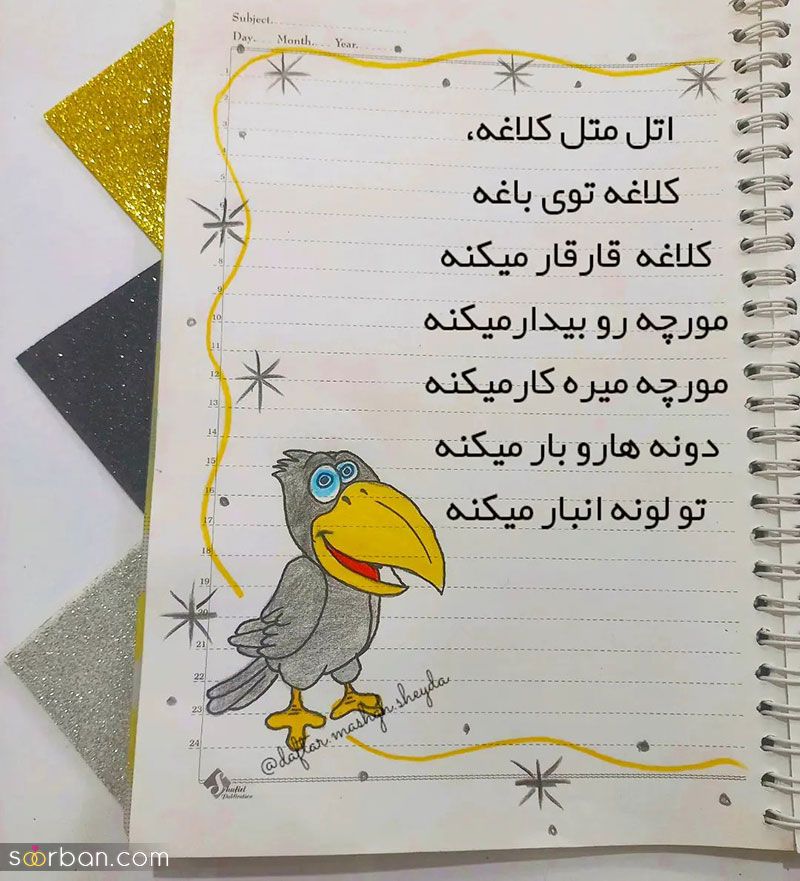 Subject.
Day. Month. Year.
اتل متل کلاغه،
کلاغه توی باغه
کلاغه قارقار میکنه
مورچه رو بیدارمیکنه
مورچه میره کارمیکنه
دونه هارو بار میکنه
تو لونه انبار میکنه
1
2
3
4
5
6
7
8
9
10
11
12
13
14
15
16
17
18
19
20
21
22
23
24
@daftar.mashgh.sheyda
Publication
soorban.com